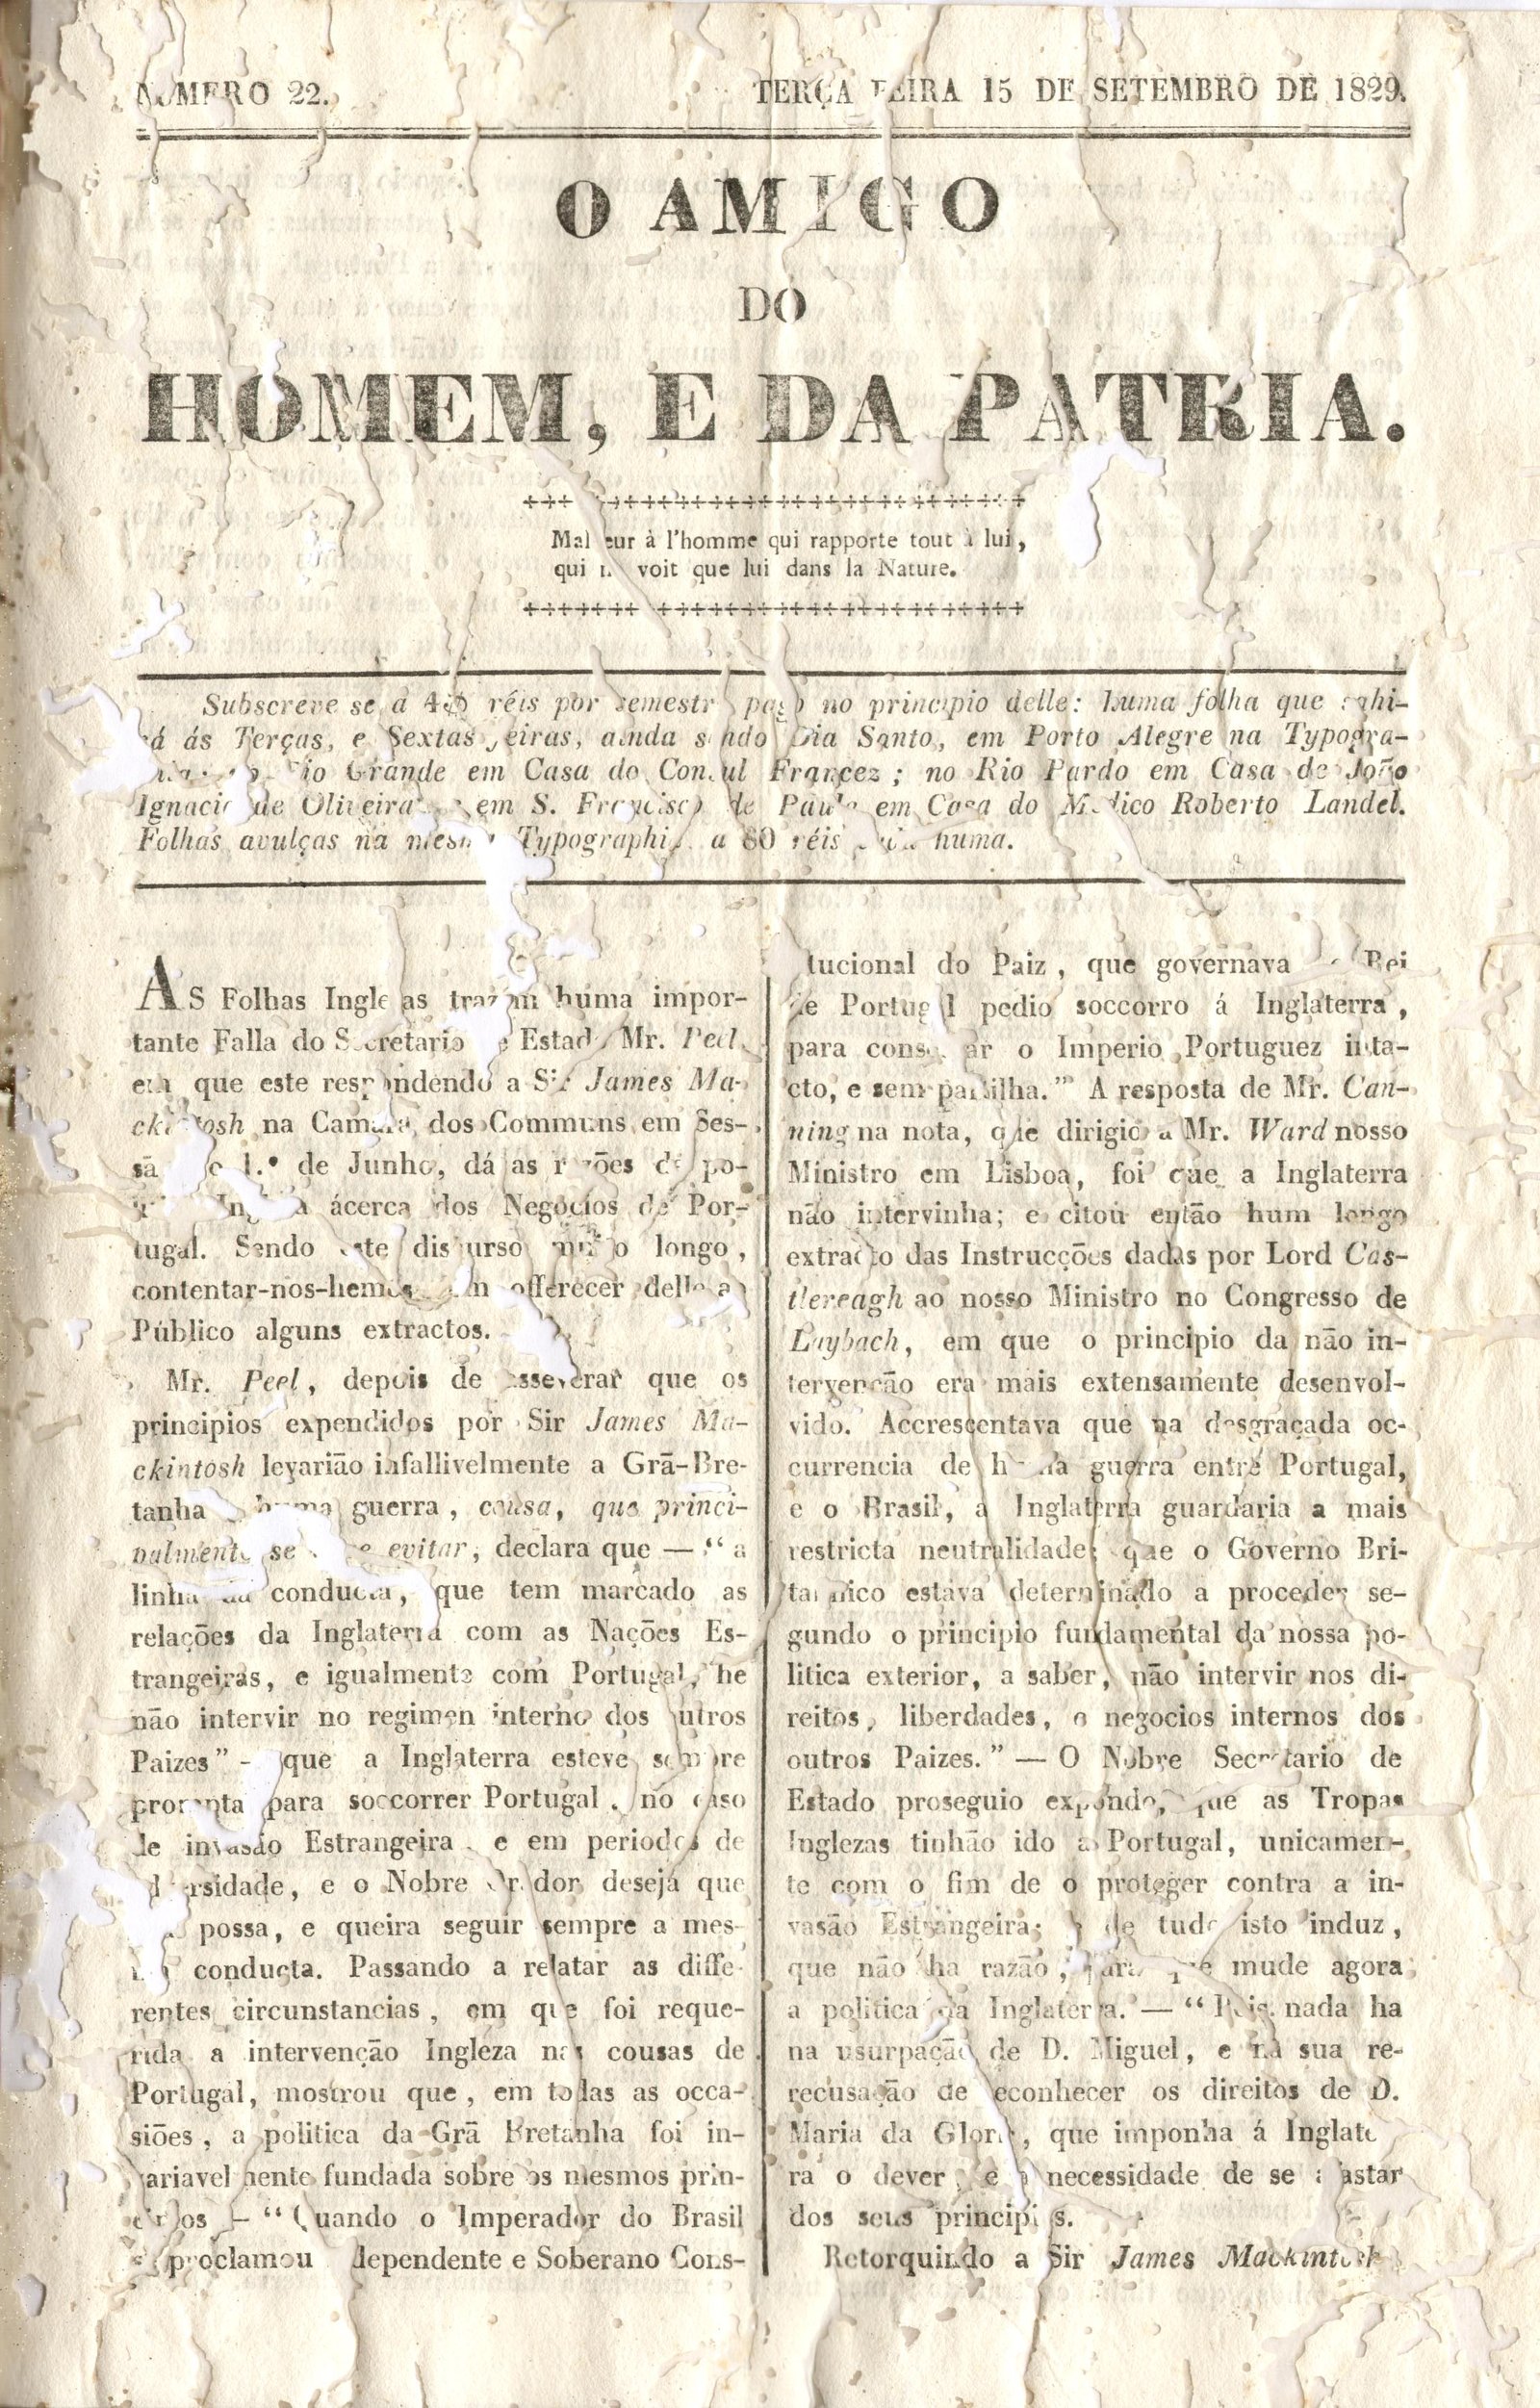 NUMERO 22.
TERÇA FEIRA 15 DE SETEMBRO DE 1829.
O AMIGO
DO
HOMEM, E DA PATRIA.
Malheur à l'homme qui rapporte tout à lui,
qui ne voit que lui dans la Nature.
Subscreve se a 4$ réis por semestre pago no principio delle: huma folha que sahi-
rá ás Terças, e Sextas feiras, ainda sendo Dia Santo, em Porto Alegre na Typogra-
Rio Grande em Casa do Consul Francez; no Rio Pardo em Casa de João
Ignacio de Oliveira em S. Francisco de Paula em Casa do Medico Roberto Landel.
Folhas avulças na mesma Typographia a 80 réis cada huma.
AS Folhas Inglezas trazem huma impor-
tante Falla do Secretario de Estado Mr. Peel,
em que este respondendo a Sir James Ma-
ckintosh na Camara dos Communs em Ses-
são do 1.º de Junho, dá as razões da po-
Ingleza ácerca dos Negocios de Por-
tugal. Sendo este discurso muito longo,
contentar-nos-hemos em offerecer delle ao
Público alguns extractos.
Mr. Peel, depois de asseverar que os
principios expendidos por Sir James Ma-
ckintosh levarião infallivelmente a Grã-Bre-
tanha a huma guerra, cousa, que princi-
palmente se deve evitar, declara que — “a
linha da conducta, que tem marcado as
relações da Inglaterra com as Nações Es-
trangeiras, e igualmente com Portugal, he
não intervir no regimen interno dos outros
Paizes” - que a Inglaterra esteve sempre
prompta para soccorrer Portugal, no caso
de invasão Estrangeira, e em periodos de
adversidade, e o Nobre Orador deseja que
possa, e queira seguir sempre a mes-
ma conducta. Passando a relatar as diffe-
rentes circunstancias, em que foi reque-
rida a intervenção Ingleza nas cousas de
Portugal, mostrou que, em todas as occa-
siões, a politica da Grã Bretanha foi in-
variavelmente fundada sobre os mesmos prin-
cipios — “Quando o Imperador do Brasil
se proclamou Independente e Soberano Cons-
titucional do Paiz, que governava o Rei
de Portugal pedio soccorro á Inglaterra,
para conservar o Imperio Portuguez inta-
cto, e sem partilha.” A resposta de Mr. Can-
ning na nota, que dirigio a Mr. Ward nosso
Ministro em Lisboa, foi que a Inglaterra
não intervinha; e citou então hum longo
extracto das Instrucções dadas por Lord Cas-
tlereagh ao nosso Ministro no Congresso de
Laybach, em que o principio da não in-
tervenção era mais extensamente desenvol-
vido. Accrescentava que na desgraçada oc-
currencia de huma guerra entre Portugal,
e o Brasil, a Inglaterra guardaria a mais
restricta neutralidade; que o Governo Bri-
tannico estava determinado a proceder se-
gundo o principio fundamental da nossa po-
litica exterior, a saber, não intervir nos di-
reitos, liberdades, e negocios internos dos
outros Paizes.” — O Nobre Secretario de
Estado proseguio expondo, que as Tropas
Inglezas tinhão ido a Portugal, unicamen-
te com o fim de o proteger contra a in-
vasão Estrangeira; e de tudo isto induz,
que não ha razão, para que mude agora
a politica da Inglaterra. — “Pois nada ha
na usurpação de D. Miguel, e na sua re-
recusação de reconhecer os direitos de D.
Maria da Gloria, que imponha á Inglater-
ra o dever, e a necessidade de se afastar
dos seus principios.
Retorquindo a Sir James Mackintosh